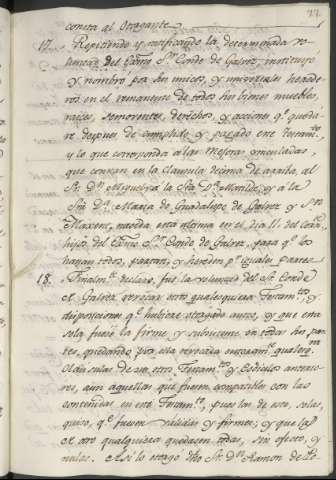 22
conste al Otorgante
17. Repitiendo, y ratificando la determinada vo-
luntad del Exmo. Sor. Conde de Galvez, instituyo
y nombro por sus unicos, y universales herede-
ros en el remanente de todos sus bienes muebles,
raices, semovientes, derechos, y acciones qe. queda-
re despues de cumplido y pagado este Testamto.
y lo que corresponda a las mejoras vinculadas
que constan en la clausula decima de aquella, al
Sr. Dn. Miguel, a la Sta. Da. Matilde, y a la
Sta. Da. Maria de Guadalupe de Galvez y Sn.
Maxent, nacida esta ultima en el dia 11 del corrte.
hijos del Exmo. Sor. Conde de Galvez, para qe. los
hayan todos, gozen, y hereden pr. iguales partes
18. Finalmte. declaro, fue la voluntad del Sr. Conde
de Galvez revocar otro qualesquiera Testamto., y
disposicion qe. hubiese otorgado antes, y que esta
sola fuese la firme, y subsistente en todas sus par-
tes, quedando por ella revocada enteramte. qualesqra.
clausulas de su otro Testamto. y Codicilos anterio-
res, aun aquellas que fuesen compatibles con las
contenidas en este Testamto., pues las de esto, solas,
quiso, qe. fuesen validas y firmes; y que las
de otro qualquiera quedasen todas, sin efecto, y
nulas. Asi lo otorgo dho Sr. Dn. Ramon de Po-